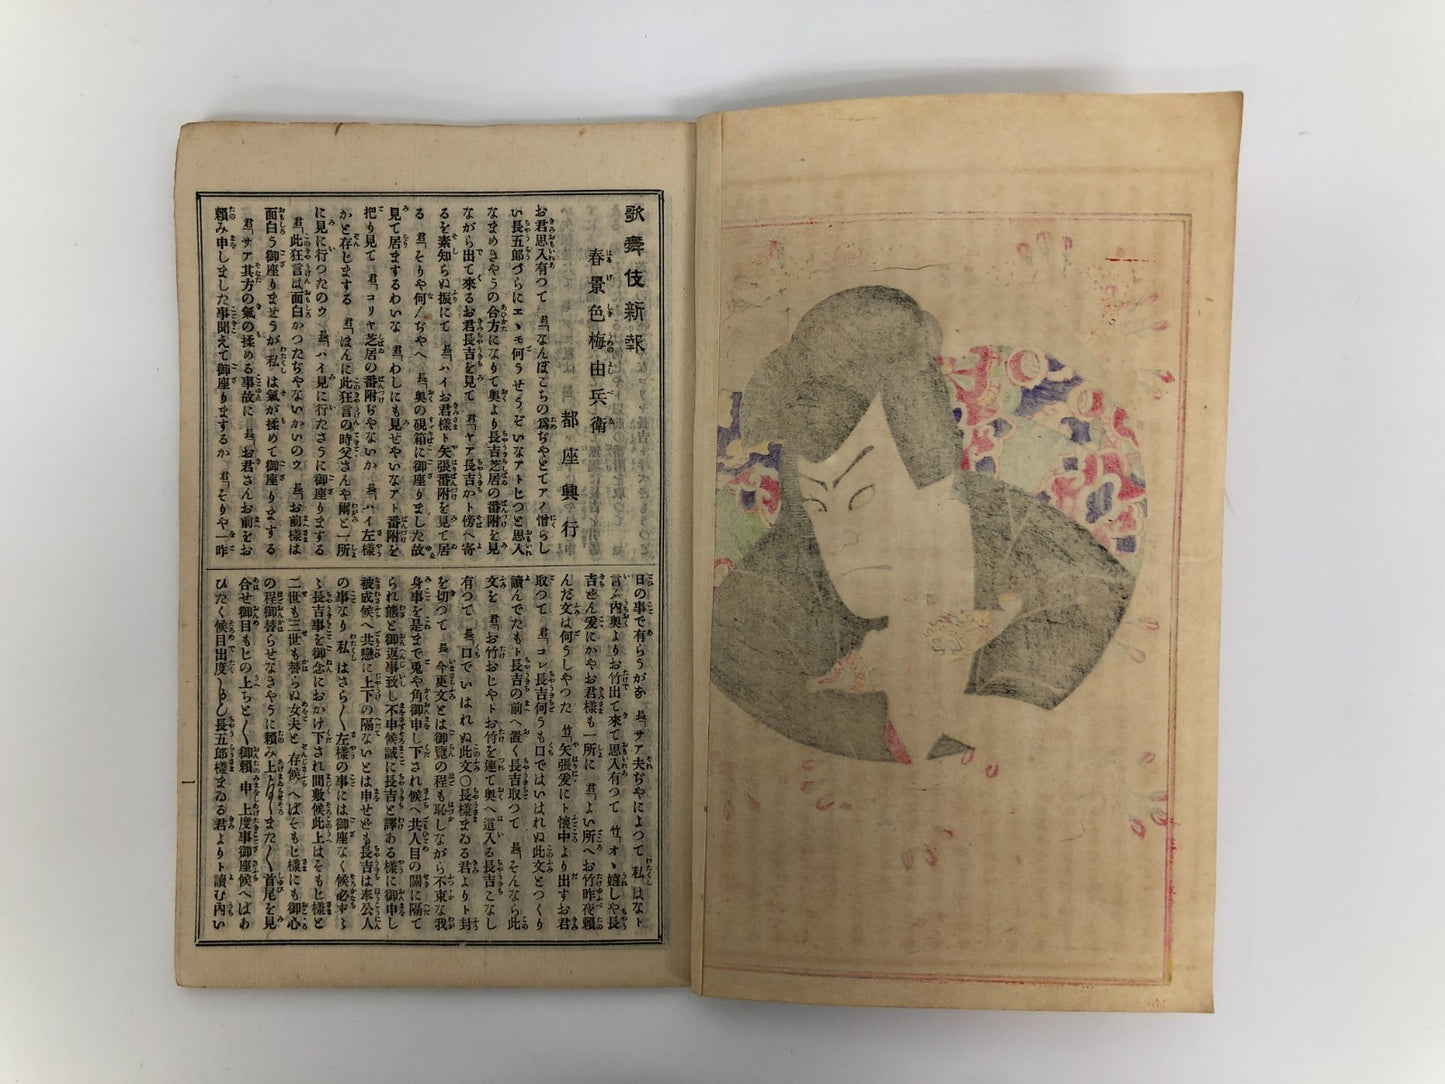 歌舞伎新報
春景色梅由兵衛
都座興行
お君思入有つて 君「なんぼこちの爲ぢやとてアノ憎らし
い長五郎づらにエヽモ何うせうぞいなアトヒつと思入
なまめきやうの合方になりて奥より長吉芝居の番附を見
ながら出て來るお君長吉を見て 君「ヤア長吉かト傍へ寄
るを素知らぬ振にて 長「ハイお君様ト矢張番附を見て居
る 君「そりや何んぢやへ 長「奥の硯箱に御座りました故
見て居まするわいな 君「わしにも見せやいなアト番附を
把り見て 君「コリヤ芝居の番附ぢやないか 長「ハイ左様
かと存じまする 君「ほんに此狂言の時父さんや爾と一所
に見に行つたのウ 長「ハイ見に行たさうに御座りまする
君「此狂言は面白かつたぢやないかいのウ 長「お前様は
面白う御座りませうが私は氣が揉めて御座りまする
君「サア其方の氣の揉める事故に 長「お君さんお前をお
頼み申しました事聞えて御座りまするか 君「そりや一昨
日の事で有らうがな 長「サア夫ぢやによつて私はなト
言ふ内奥よりお竹出て來て思入有つて 竹「オヽ嬉しや長
吉どん爰にかやお君様も一所に 君「よい所へお竹昨夜頼
んだ文は何うしやつた 竹「矢張爰にト懷中より出すお君
取つて 君「コレ長吉何うも口ではいはれぬ此文とつくり
讀んでたもト長吉の前へ置く長吉取つて 長「そんなら此
文を 君「お竹おじやトお竹を連て奥へ這入る長吉こなし
有つて 長「口でいはれぬ此文〇長様まゐる君よりト封
を切つて 長「今更文とは御覽の程も恥しながら不束な我
身事を是まで兎や角御申し下され候へ共人目の關に隔て
られ態と御返事致し不申候誠に長吉と譯ある様に御申し
被成候へ共戀に上下の隔ないとは申せども長吉は奉公人
の事なり私はさら〳〵左様の事には御座なく候必ず〳〵
長吉事を御念におかけ下され間敷候此上はそもじ様と
二世も三世も替らぬ女夫と存候へばそもじ様にも御心
の程御替らせなきやうに頼み上〳〵また〳〵首尾を見
合せ御目もじの上ちと〳〵御頼申上度事御座候へばあ
ひたく候目出度〳〵かしく長五郎様まゐる君よりト讀む内い
一